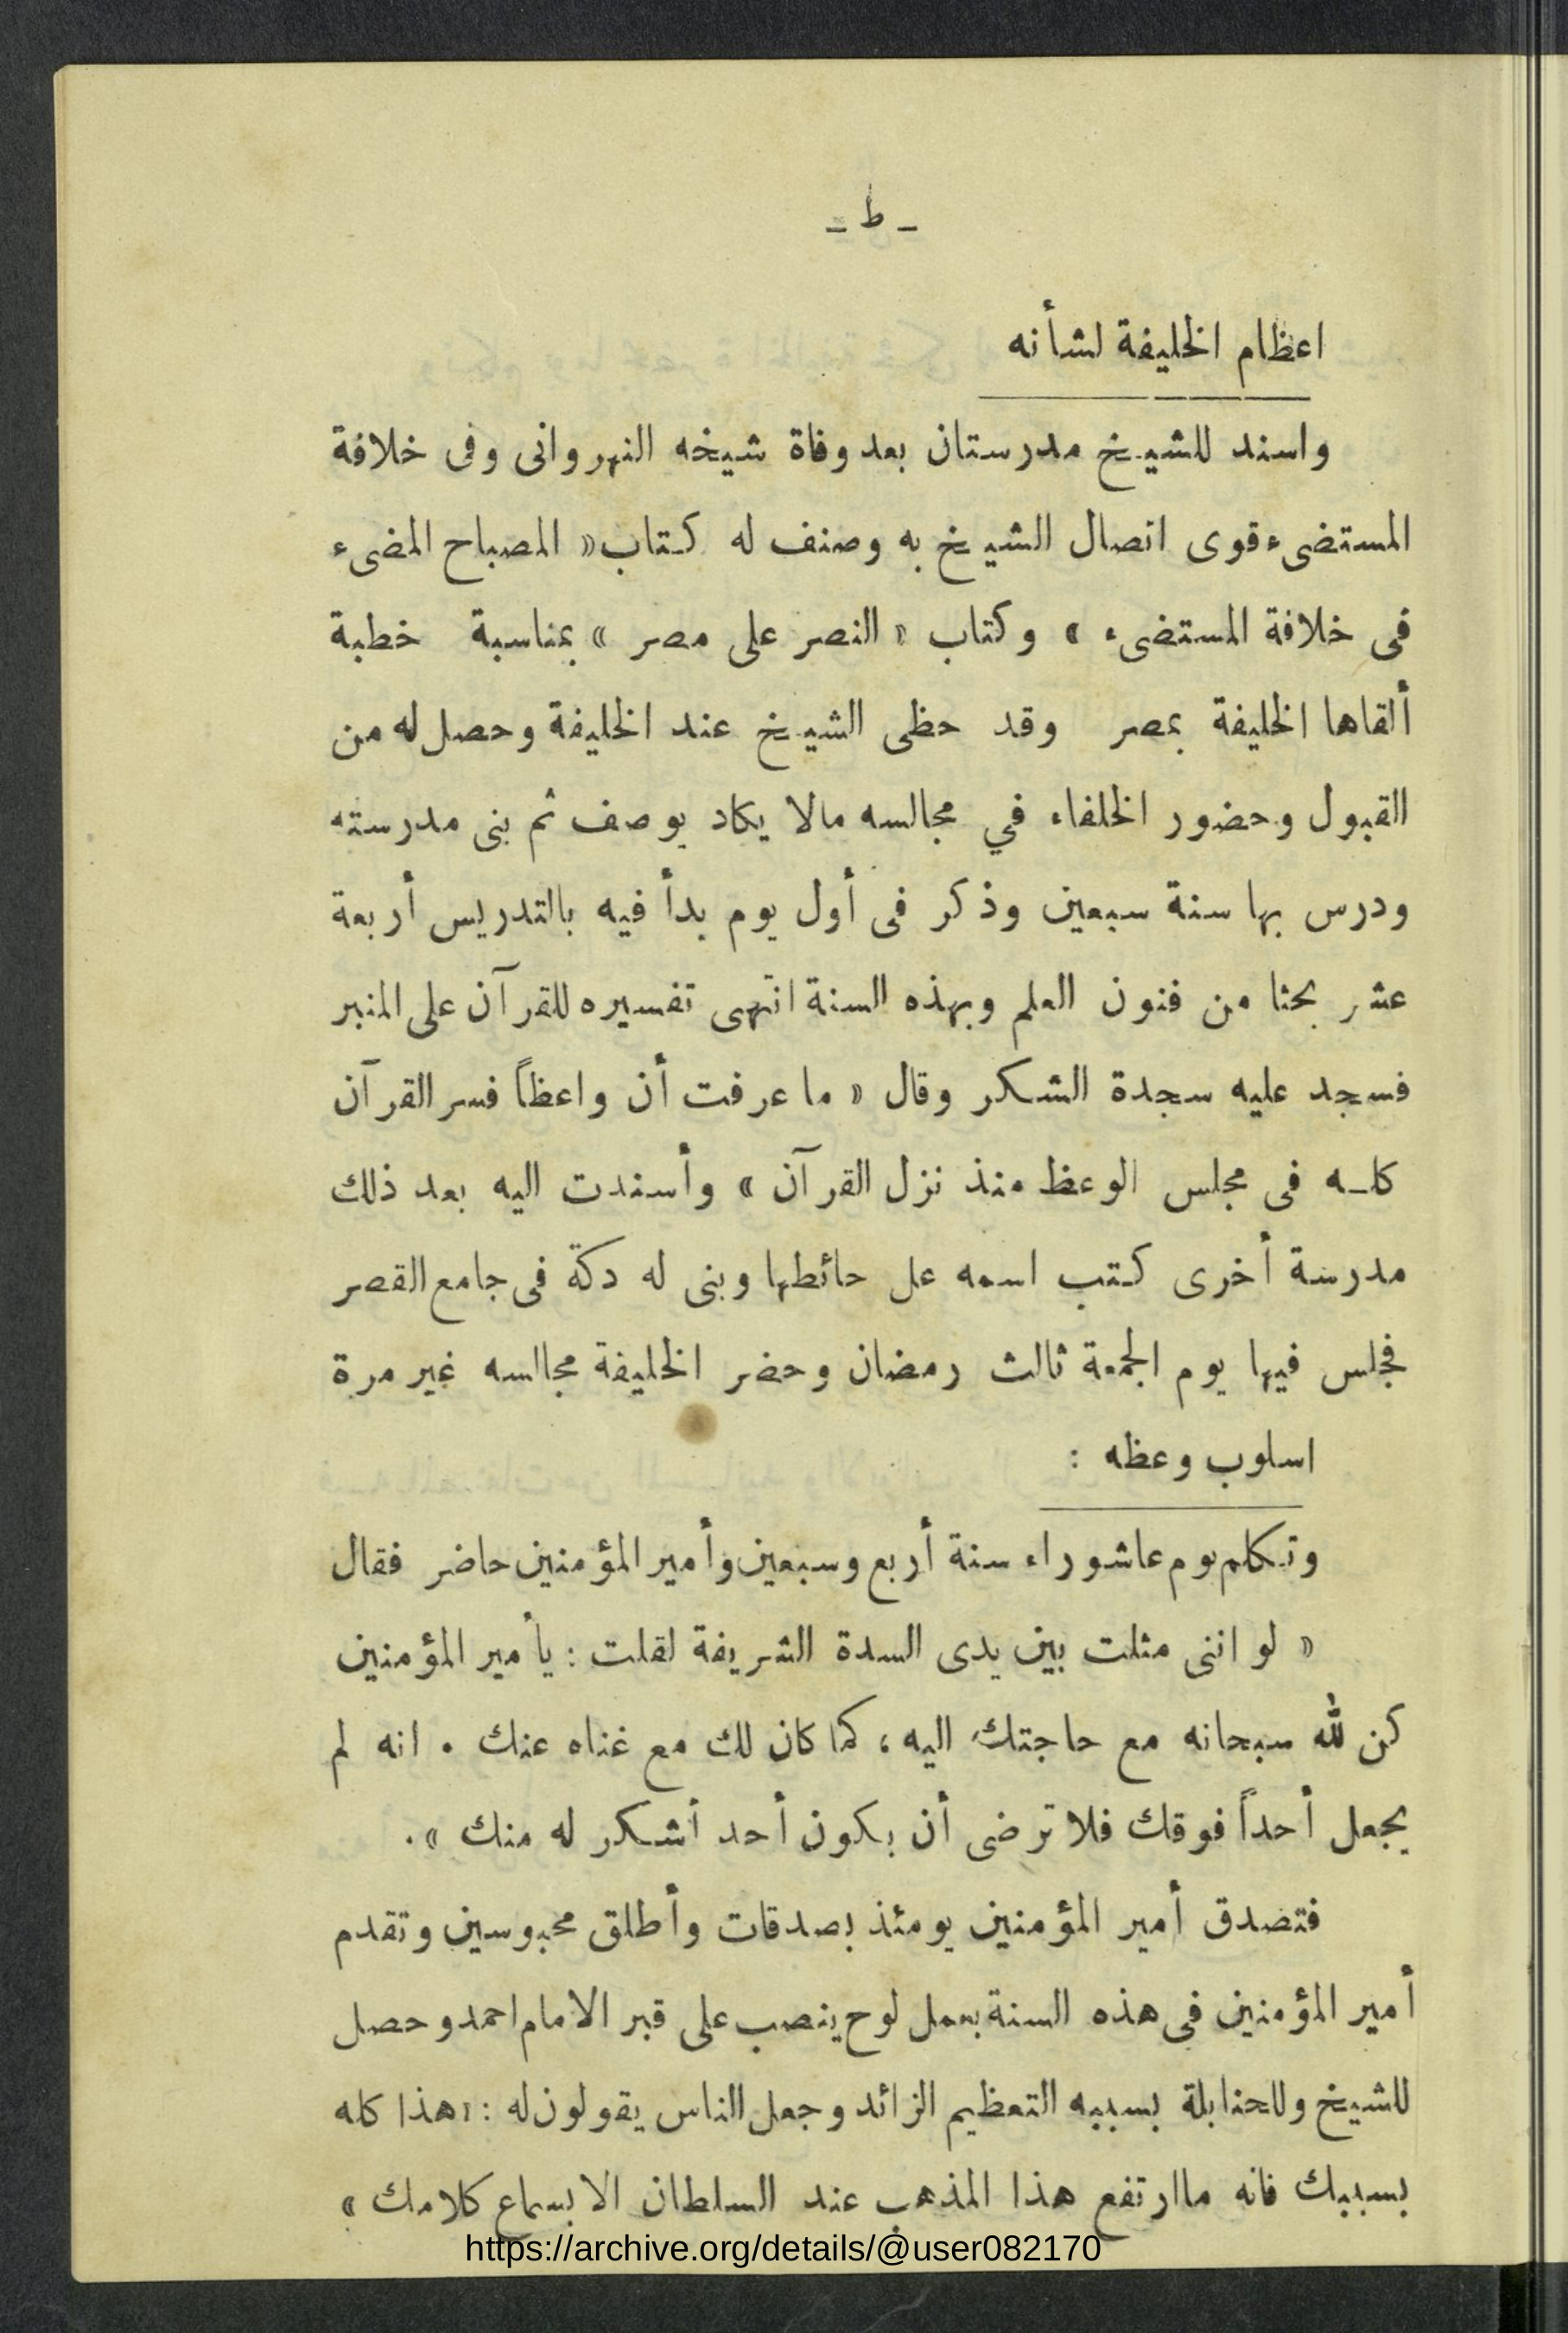 ـ ط ـ
اعظام الخليفة لشأنه
واسند للشيخ مدرستان بعد وفاة شيخه النهروانى وفى خلافة
المستضىء قوى اتصال الشيخ به وصنف له كتاب « المصباح المضىء
فى خلافة المستضىء » وكتاب « النصر على مصر » بمناسبة خطبة
ألقاها الخليفة بمصر وقد حظى الشيخ عند الخليفة وحصل له من
القبول وحضور الخلفاء في مجالسه مالا يكاد يوصف ثم بنى مدرسته
ودرس بها سنة سبعين وذكر فى أول يوم بدأ فيه بالتدريس أربعة
عشر بحثا من فنون العلم وبهذه السنة انتهى تفسيره للقرآن على المنبر
فسجد عليه سجدة الشكر وقال « ما عرفت أن واعظاً فسر القرآن
كلـه فى مجلس الوعظ منذ نزل القرآن » وأسندت اليه بعد ذلك
مدرسة أخرى كتب اسمه على حائطها وبنى له دكة فى جامع القصر
فجلس فيها يوم الجمعة ثالث رمضان وحضر الخليفة مجالسه غير مرة
اسلوب وعظه :
وتكلم يوم عاشوراء سنة أربع وسبعين وأمير المؤمنين حاضر فقال
« لو اننى مثلت بين يدى السدة الشريفة لقلت : يا أمير المؤمنين
كن لله سبحانه مع حاجتك اليه ، كما كان لك مع غناه عنك . انه لم
يجعل أحداً فوقك فلا ترضى أن يكون أحد أشكر له منك » .
فتصدق أمير المؤمنين يومئذ بصدقات وأطلق محبوسين وتقدم
أمير المؤمنين فى هذه السنة بعمل لوح ينصب على قبر الامام احمد وحصل
للشيخ وللحنابلة بسببه التعظيم الزائد وجعل الناس يقولون له : «هذا كله
بسببك فانه ماارتفع هذا المذهب عند السلطان الا بسماع كلامك »
https://archive.org/details/@user082170